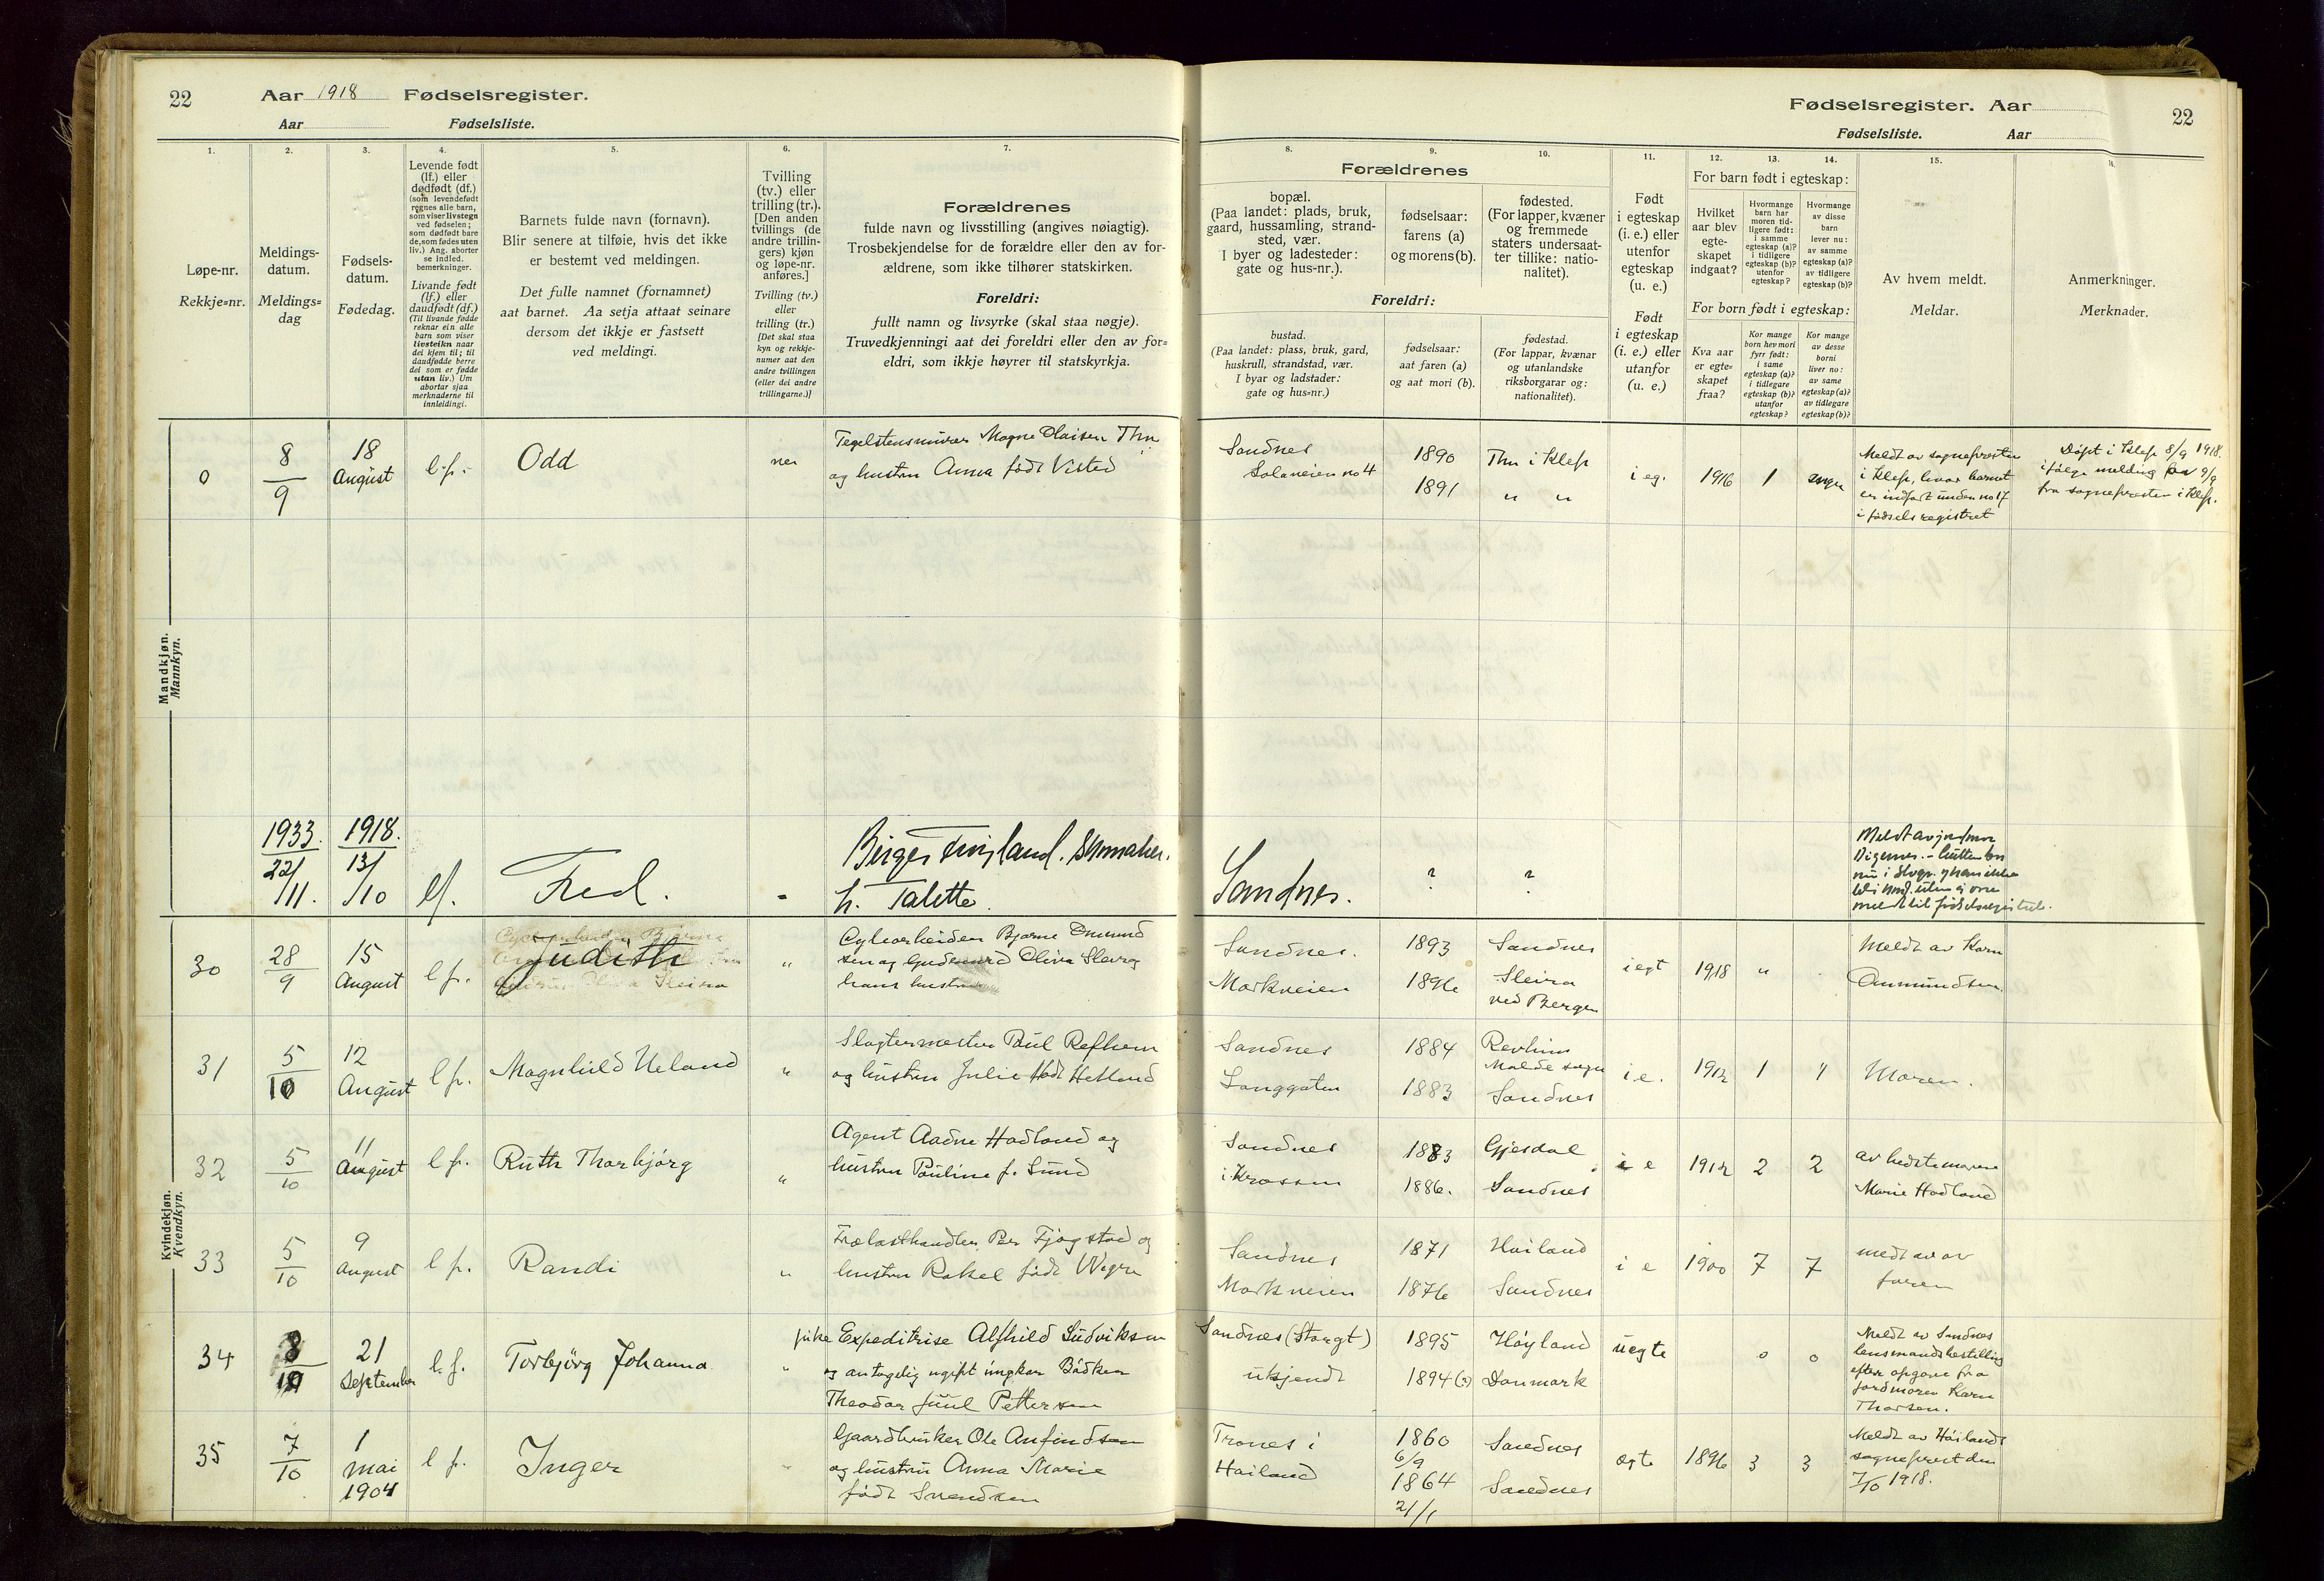 22 Aar 1918 Fødselsregister.
Aar Fødselsliste.
Fødselsregister. Aar 22
Fødselsliste. Aar
1.
Løpe-nr.
Rekkje=nr.
2.
Meldings-
datum.
Meldings=
dag
3.
Fødsels-
datum.
Fødedag.
4.
Levende født
(lf.) eller
dødfødt (df.)
(som levendefødt
regnes alle barn,
som viser livstegn
ved fødselen;
som dødfødt bare
de, som fødes uten
liv.) Ang. aborter
se indled.
bemerkninger.
Livande født
(lf.) eller
daudfødt (df.)
(Til livande fødde
reknar ein alle
barn som viser
livsteikn naar
dei kjem til; til
daudfødde berre
dei som er fødde
utan liv.) Um
abortar sjaa
merknaderne til
innleidingi.
5.
Barnets fulde navn (fornavn).
Blir senere at tilføie, hvis det ikke
er bestemt ved meldingen.
Det fulle namnet (fornamnet)
aat barnet. Aa setja attaat seinare
dersom det ikkje er fastsett
ved meldingi.
6.
Tvilling
(tv.) eller
trilling (tr.).
[Den anden
tvillings (de
andre trillin-
gers) kjøn
og løpe-nr.
anføres.]
Tvilling (tv.)
eller
trilling (tr.)
[Det skal staa
kyn og rekkje-
numer aat den
andre tvillingen
(eller dei andre
trillingarne.)]
7.
Forældrenes
fulde navn og livsstilling (angives nøiagtig).
Trosbekjendelse for de forældre eller den av for-
ældrene, som ikke tilhører statskirken.
Foreldri:
fullt namn og livsyrke (skal staa nøgje).
Truvedkjenningi aat dei foreldri eller den av for=
eldri, som ikkje høyrer til statskyrkja.
Forældrenes
8.
bopæl.
(Paa landet: plads, bruk,
gaard, hussamling, strand-
sted, vær.
I byer og ladesteder:
gate og hus-nr.).
9.
fødselsaar:
farens (a)
og morens (b).
10.
fødested.
(For lapper, kvæner
og fremmede
staters undersaat-
ter tillike: natio-
nalitet).
Foreldri:
bustad.
(Paa landet: plass, bruk, gard,
huskrull, strandstad, vær.
I byar og ladstader:
gate og hus=nr.)
fødselsaar:
aat faren (a)
og aat mori (b).
fødestad.
(For lappar, kvænar
og utanlandske
riksborgarar og:
nationalitet).
11.
Født
i egteskap
(i. e.) eller
utenfor
egteskap
(u. e.)
Født
i egteskap
(i. e.) eller
utanfor
(u. e.)
For barn født i egteskap:
12.
Hvilket
aar blev
egte-
skapet
indgaat?
13.
Hvormange
barn har
moren tid-
ligere født:
i samme
egteskap (a)?
i tidligere
egteskap (b)?
utenfor
egteskap?
14.
Hvormange
av disse
barn
lever nu:
av samme
egteskap (a)?
av tidligere
egteskap (b)?
For born født i egteskap:
Kva aar
er egte=
skapet
fraa?
Kor mange
born hev mori
fyrr født:
i same
egteskap (a)?
i tidlegare
egteskap (b)?
utanfor
egteskap?
Kor mange
av desse
borni
liver no:
av same
egteskap (a)?
av tidlegare
egteskap (b)?
15.
Av hvem meldt.
Meldar.
16.
Anmerkninger.
Merknader.
Mandkjøn.
Mannkyn.
0 8/9 18 August l.f. Odd nei
Tegelstensmurer Magne Olaisen Thu
og hustru Anna født Visted
Sandnes
Solaveien no 4
1890 Thu i Klep
1891 " "
i eg. 1916 1 ingen
Meldt av sognepresten
i Klep, hvor barnet
er indført under no 17
i fødselsregistret
Døpt i Klep 8/9 1918.
ifølge melding 9/9
fra sognepresten i Klep.
1933 22/11. 1918. 13/10 lf. Fred. -
Birger skomaker.
h. Talette.
Sandnes. ? ?
Meldt av jordmor
Kvindekjøn.
Kvendkyn.
30 28/9 15 August l f. Judith "
Bjarne
sen og Oliva
hans hustru
Sandnes.
Markveien
1893 Sandnes
1896 Sleira
ved Bergen
i egt 1918 "
Meldt av Karn
Aanmundsen
31 5/10 12 August l f. Magnhild Ueland "
Slagtermester Paul Refheim
og hustru Julie født Hetland
Sandnes
Langgaten
1884 Revheim
Malde sogn
1883 Sandnes
i e. 1912 1 "
Moren.
32 5/10 11 August l f. Ruth Thorbjørg "
Agent Aadne Hadland og
hustru Pauline f. Sund
Sandnes
i Krossen
1883 Gjesdal
1886. Sandnes
i e 1912 2 2
av bedstemoren
Marie Hadland
33 5/10 9 August l f. Randi "
Trælasthandler Per Fjogstad og
hustru Rakel født Wegre
Sandnes
Markveien
1871 Høiland
1876 Sandnes
i e 1900 7 7
meldt av
faren
34 8/10 21 September l. f. Torbjørg Johanna "
pike Expeditrise Alfhild Ludviksen
og antagelig ugift ungkar Bødker
Theodor Juul Pettersen
Sandnes (Storgt)
ukjendt
1895 Høyland
1894 (?) Danmark
uegte 0 0
Meldt av Sandnes
lensmandsbestilling
efter opgave fra
jordmoren Karn
Thorsen.
35 7/10 1 mai 1904 l f. Inger "
Gaardbruker Ole Anfindsen
og hustru Anna Marie
født Svendsen
Trones i
Høiland
1860 6/9 Sandnes
1864 21/1 Sandnes
egte 1896 3 3
Meldt av Høilands
sogneprest den
7/10 1918.